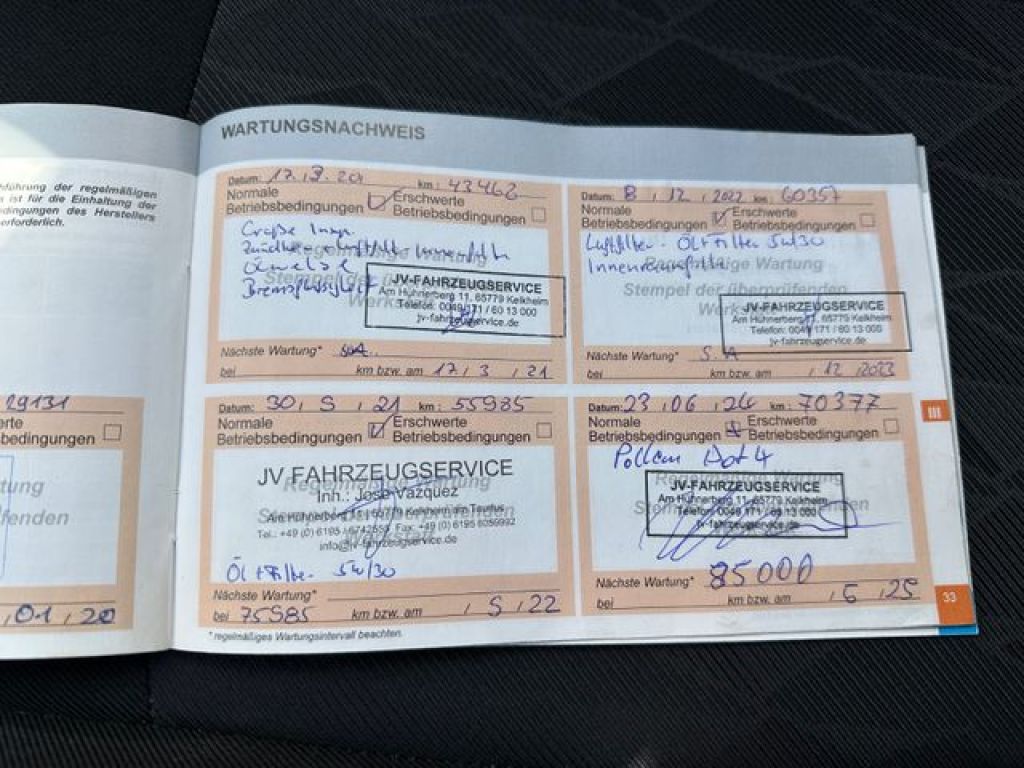 führung der regelmäßigen
ist für die Einhaltung der
dingungen des Herstellers
erforderlich.
29131
erte
Betriebsbedingungen
tung
üfenden
01 20
WARTUNGSNACHWEIS
Datum: 17.3.20 km: 43462
Normale Erschwerte
Betriebsbedingungen Betriebsbedingungen
Große Insp.
Ölwechsel
Bremsflüssigkeit
Regelmäßige Wartung
Stempel der überprüfenden
Werkstatt
JV-FAHRZEUGSERVICE
Am Hühnerberg 11, 65779 Kelkheim
Telefon: 0049/171 / 60 13 000
jv-fahrzeugservice.de
Nächste Wartung*
bei km bzw. am 17, 3, 21
Datum: 8, 12, 2022 km: 60357
Normale Erschwerte
Betriebsbedingungen Betriebsbedingungen
Luftfilter - Öl+Filter 5w/30
Innenraumfilter
Regelmäßige Wartung
Stempel der überprüfenden
Werkstatt
JV-FAHRZEUGSERVICE
Am Hühnerberg 11, 65779 Kelkheim
Telefon: 0049/171 / 60 13 000
jv-fahrzeugservice.de
Nächste Wartung* S.A
bei km bzw. am , 12, 2023
Datum: 30, 5, 21 km: 55985
Normale Erschwerte
Betriebsbedingungen Betriebsbedingungen
JV FAHRZEUGSERVICE
Inh.: José Vazquez
Am Hühnerberg 11 / 65779 Kelkheim am Taunus
Tel.: +49 (0) 6195 / 6742555 Fax: +49 (0) 6195 6059992
info@jv-fahrzeugservice.de
Öl + Filter 5w/30
Nächste Wartung*
bei 75985 km bzw. am , 5, 22
* regelmäßiges Wartungsintervall beachten.
Datum: 23, 06, 24 km: 70377
Normale Erschwerte
Betriebsbedingungen Betriebsbedingungen
Pollen Dot 4
JV-FAHRZEUGSERVICE
Am Hühnerberg 11, 65779 Kelkheim
Telefon: 0049/171 / 60 13 000
jv-fahrzeugservice.de
Nächste Wartung* 85000
bei km bzw. am , 6, 25
33